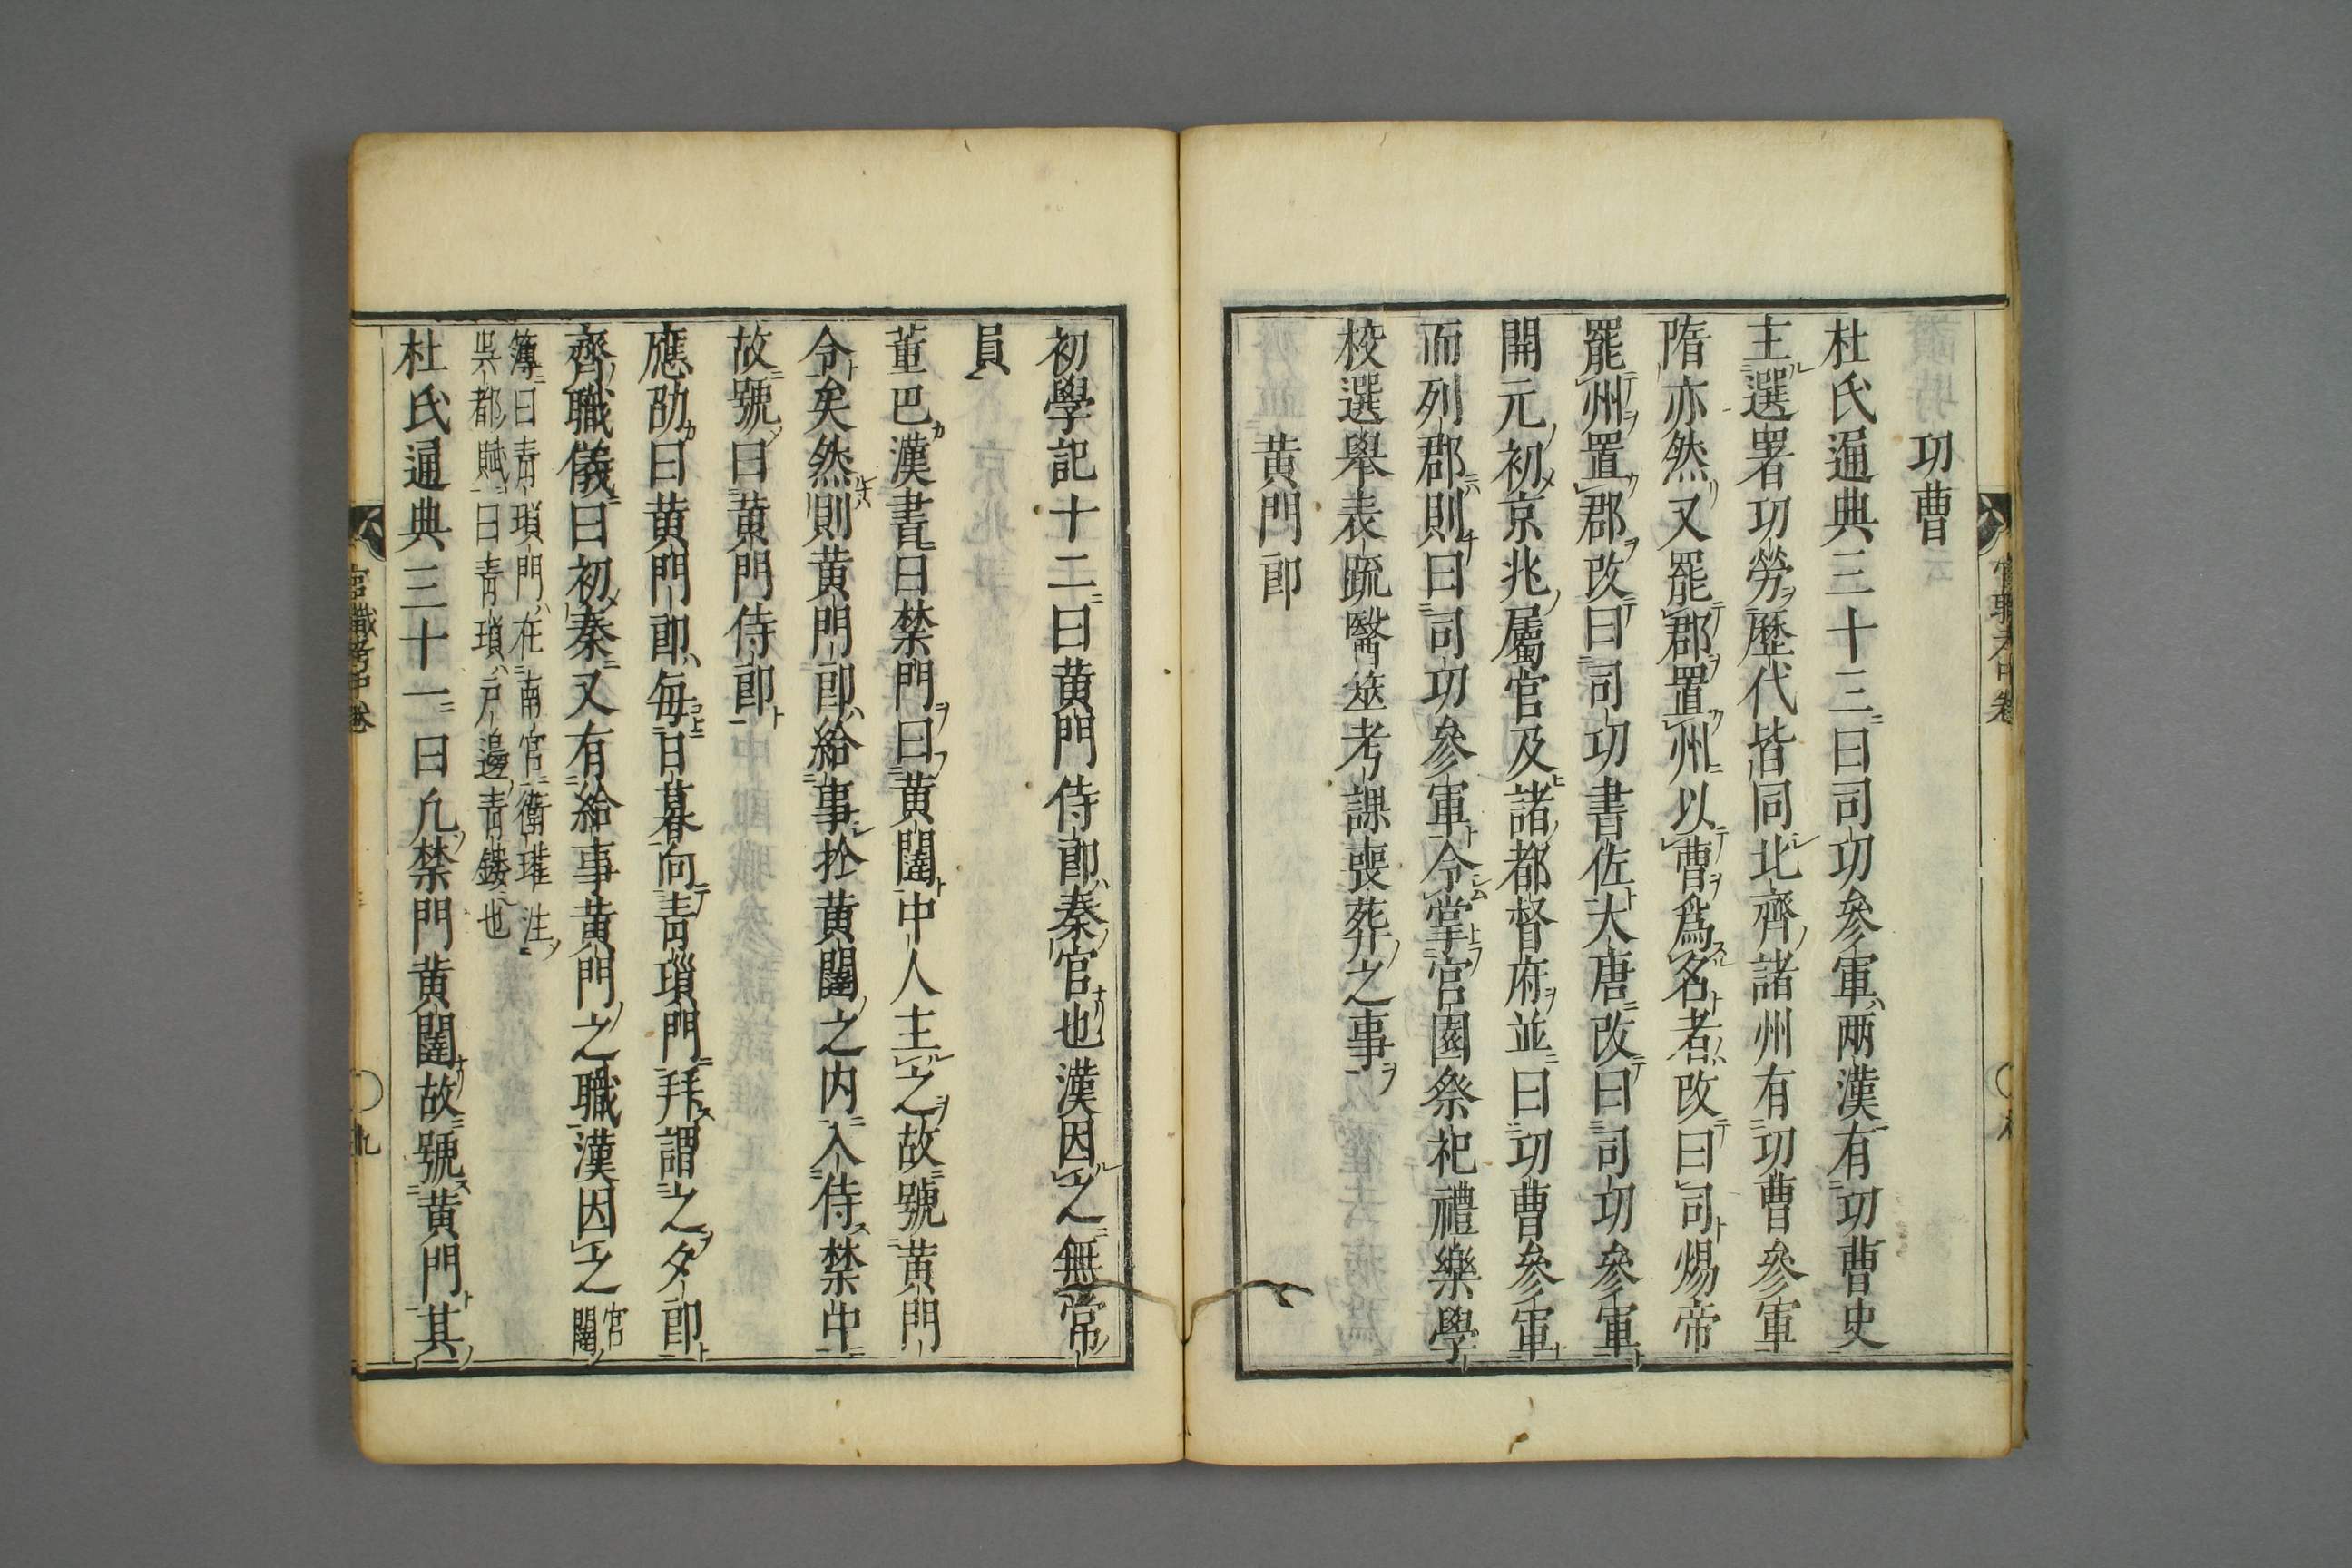 功曹
杜氏通典三十三曰司功參軍兩漢有功曹史
主選署功勞歷代皆同北齊諸州有功曹參軍
隋亦然又罷郡置州以曹爲名者改曰司煬帝
罷州置郡改曰司功書佐大唐改曰司功參軍
開元初京兆屬官及諸都督府並曰功曹參軍
而列郡則曰司功參軍令掌官園祭祀禮樂學
校選舉表疏醫筮考課喪葬之事
黃門郎
初學記十二曰黃門侍郎秦官也漢因之無常
員
董巴漢書曰禁門曰黃闥中人主之故號黃門
令矣然則黃門郎給事於黃闥之内入侍禁中
故號曰黃門侍郎
應劭曰黃門郎每日暮向靑瑣門拜謂之夕郎
齊職儀曰初秦又有給事黃門之職漢因之宮閣
簿曰青瑣門在南宮衛瓘注
吳都賦曰青瑣戶邊青鏤也
杜氏通典三十一曰凡禁門黃闥故號黃門其
官職考中卷
九